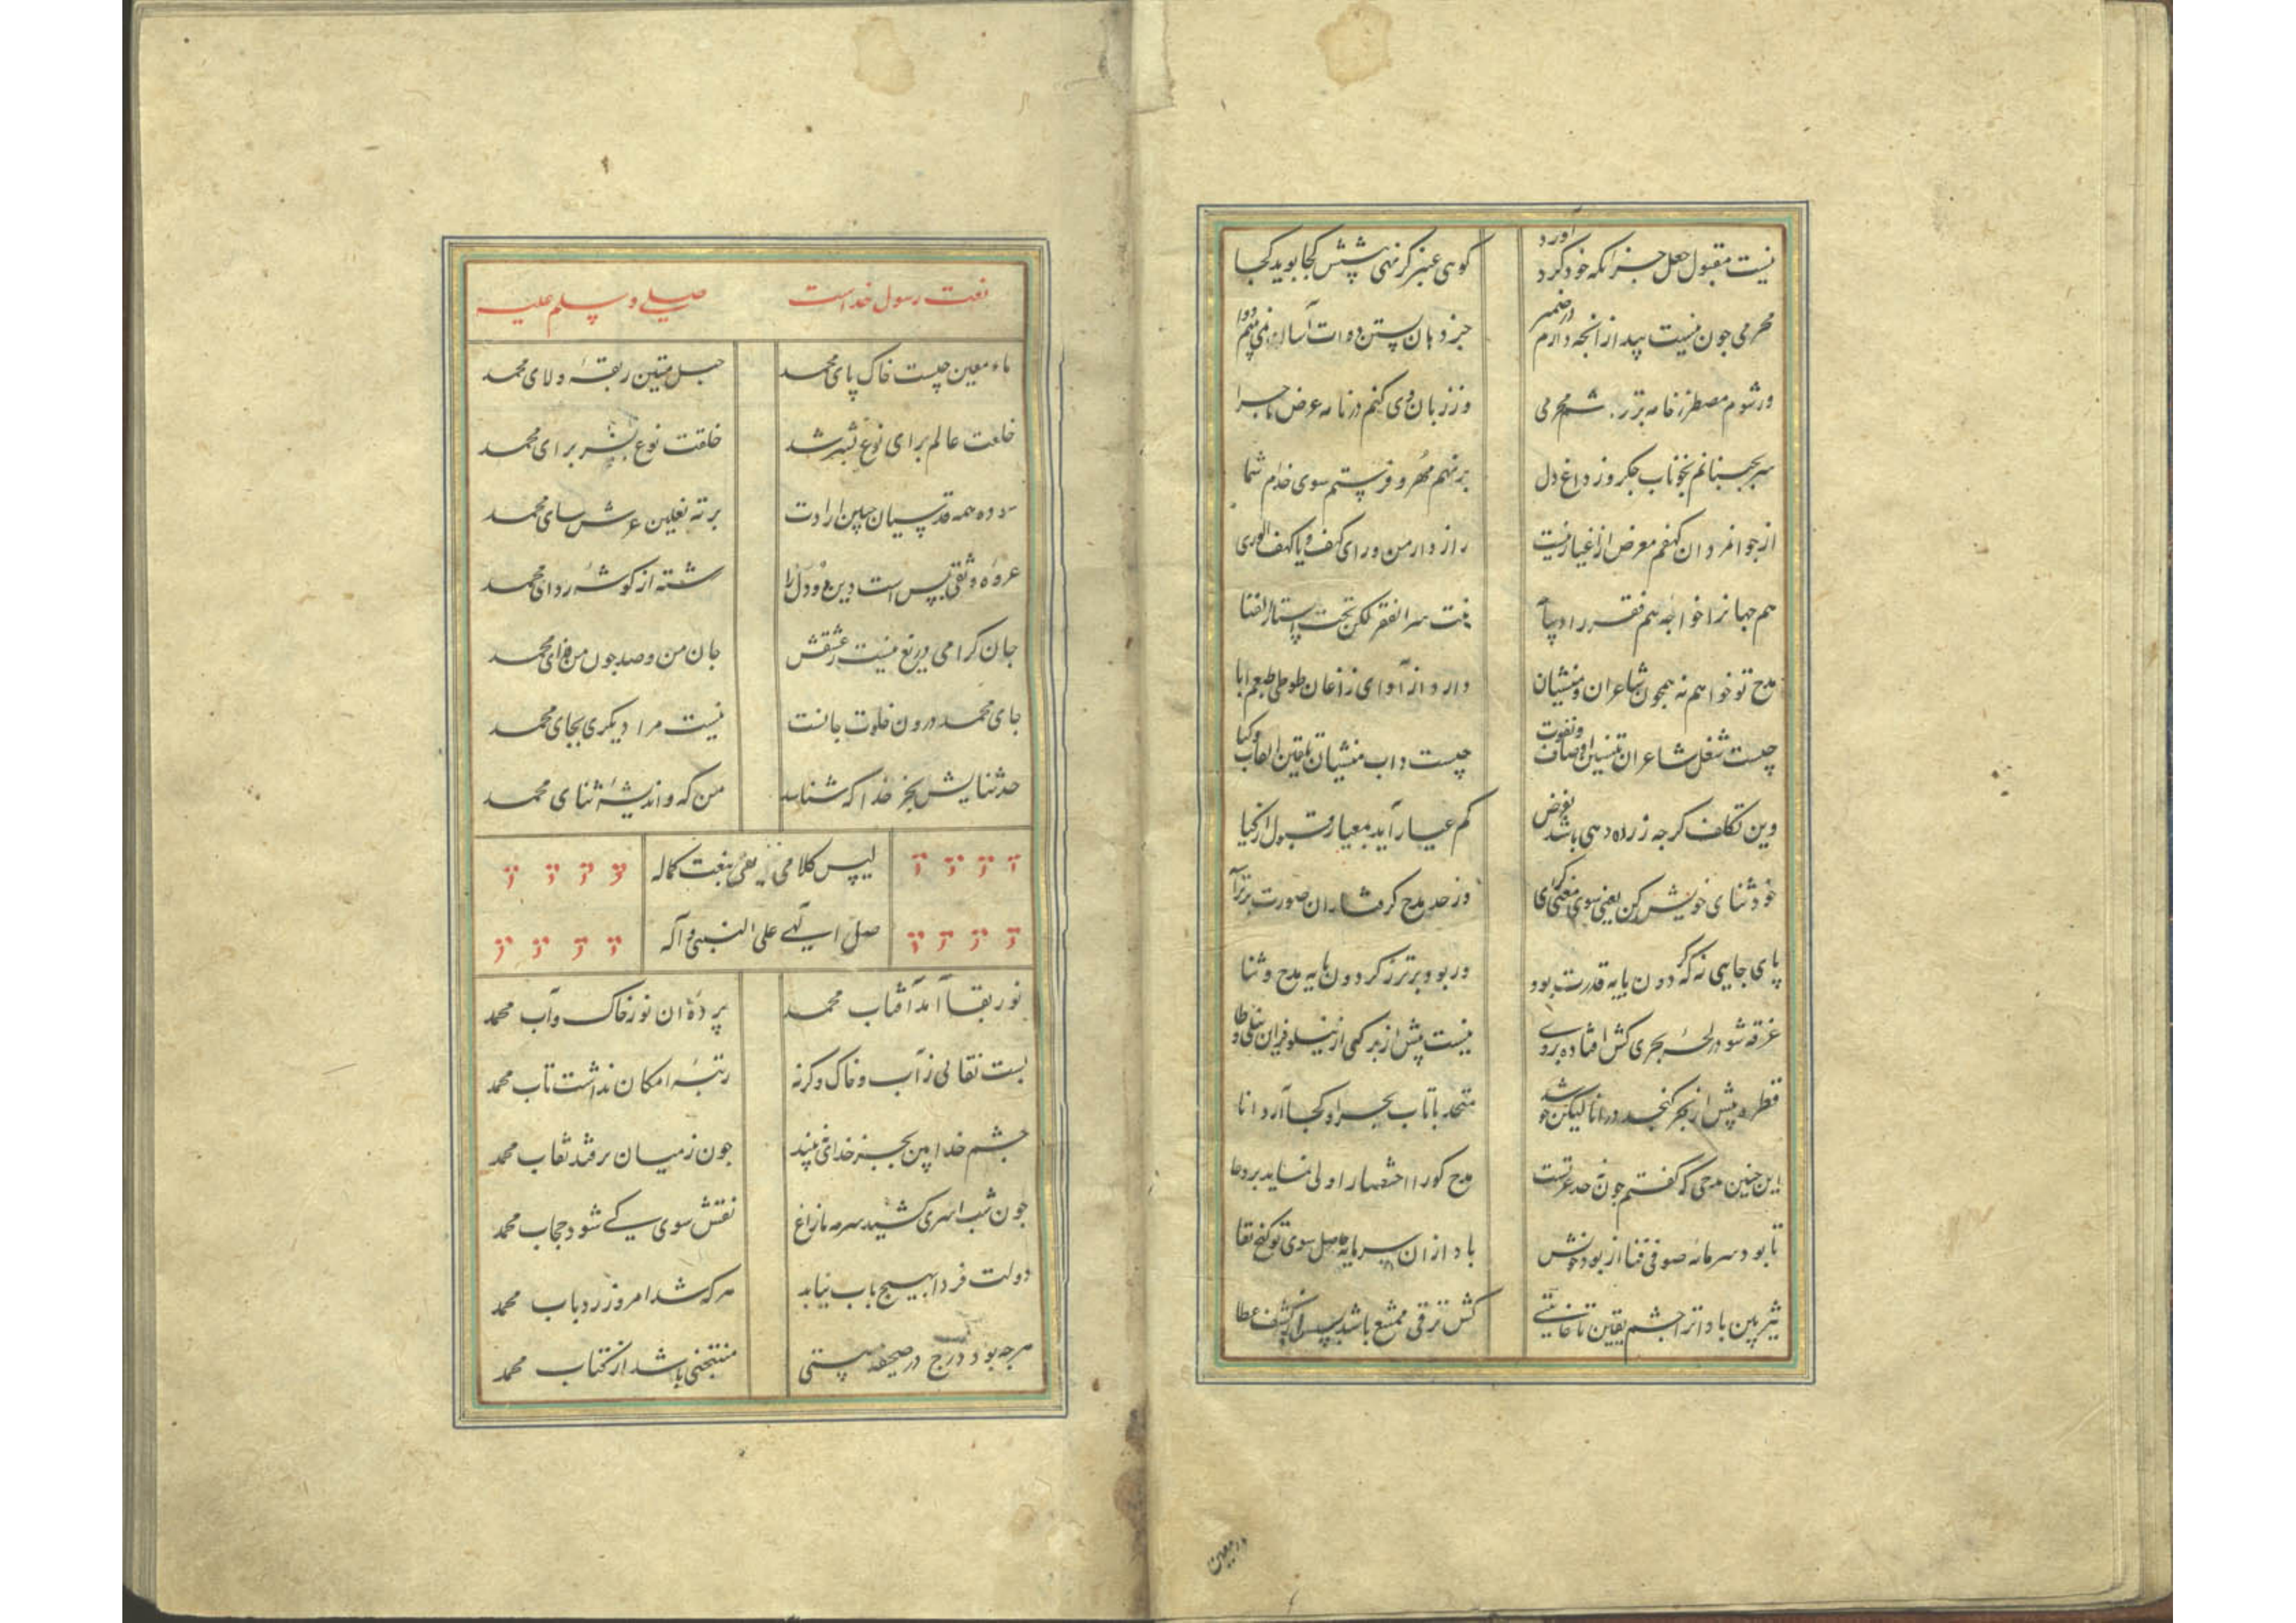 نیست مقبول جعل جز آنکه خود گرد آورد گوی عنبر گر نهی پیشش کجا بوید کجا
محرمی چون نیست پیدا ز آنچه دارم در ضمیر جز دهان بستن دوات آسا نمی بینم دوا
ور شوم مضطر ز خامه محرمی وز زبان وی کنم در نامه عرض ماجرا
سر بچسبانم بخوناب جگر وز داغ دل بر نهم مهر و فرستم سوی خدام شما
از جوانمردان کهفم معرض از اغیار نیست راز دار من ورای کهف و یا کهف الوری
هم جهانرا خواجه هم فقر را دیباچه سر الفقر لکن تحت استار الغنا
مدح تو خواهم نه همچون شاعران و منشیان دارد از آوای زاغان طوطی طبعم ابا
چیست شغل شاعران اوصاف و نعوت چیست داب منشیان تلقین القاب و کنا
وین تکلف گر چه زر ده دهی باشد بفرض کم عیار آید بمعیار قبول ازکیا
خود ثنای خویش کن یعنی سوی معنی گرای وز حد مدح گرفتاران صورت برتر آ
پای جایی نه که گر دون پایه قدرت بود ور بود برتر ز گردون پایه مدح و ثنا
غرقه شو در لجه بحری کش افتاده بروی نیست بیش از برگی از نیلوفر این نیلی وطا
قطره بیش از بحر گنجد در انا لیکن چو شد متحد با آب بحر او کجا آرد انا
این چنین مدحی که گفتم چون نه حد عزتست مدح گو را اختصار اولی نماید بر دعا
تا بود سرمایه صوفی فنا از بود خویش باد از آن سرمایه حاصل سوی تو گنج بقا
تیز بین باد اترا چشم یقین تا غایتی کش ترقی ممتنع باشد پس از کشف غطا
در معین
نعت رسول خداست صلی و سلم علیه
ماء معین چیست خاک پای محمد حبل متین ربقه ولای محمد
خلقت عالم برای نوع بشر شد خلقت نوع بشر برای محمد
سوده همه قدسیان جبین ارادت بر ته نعلین عرش سای محمد
عروه وثقی بس است دین و دل را رشته از گوشه ردای محمد
جان گرامی دریغ نیست ز عشقش جان من و صد چون من فدای محمد
جای محمد درون خلوت جانست نیست مرا دیگری بجای محمد
حد ثنایش بجز خدا که شناسد من که و اندیشه ثنای محمد
لیس کلامی یفی بنعت کماله
صل الهی علی النبی و آله
نور بقا آمد آفتاب محمد پرده آن نور خاک و آب محمد
بست نقابی ز آب و خاک و گرنه رتبه امکان نداشت تاب محمد
چشم خدا بین بجز خدای نبیند چون ز میان بر فتد نقاب محمد
چون شب اسری کشید سرمه مازاغ نقش سوی کی شود حجاب محمد
دولت فردا بهیچ باب نیابد هر که شد امروز رد باب محمد
هر چه بود درج در صحیفه هستی منتخبی باشد از کتاب محمد